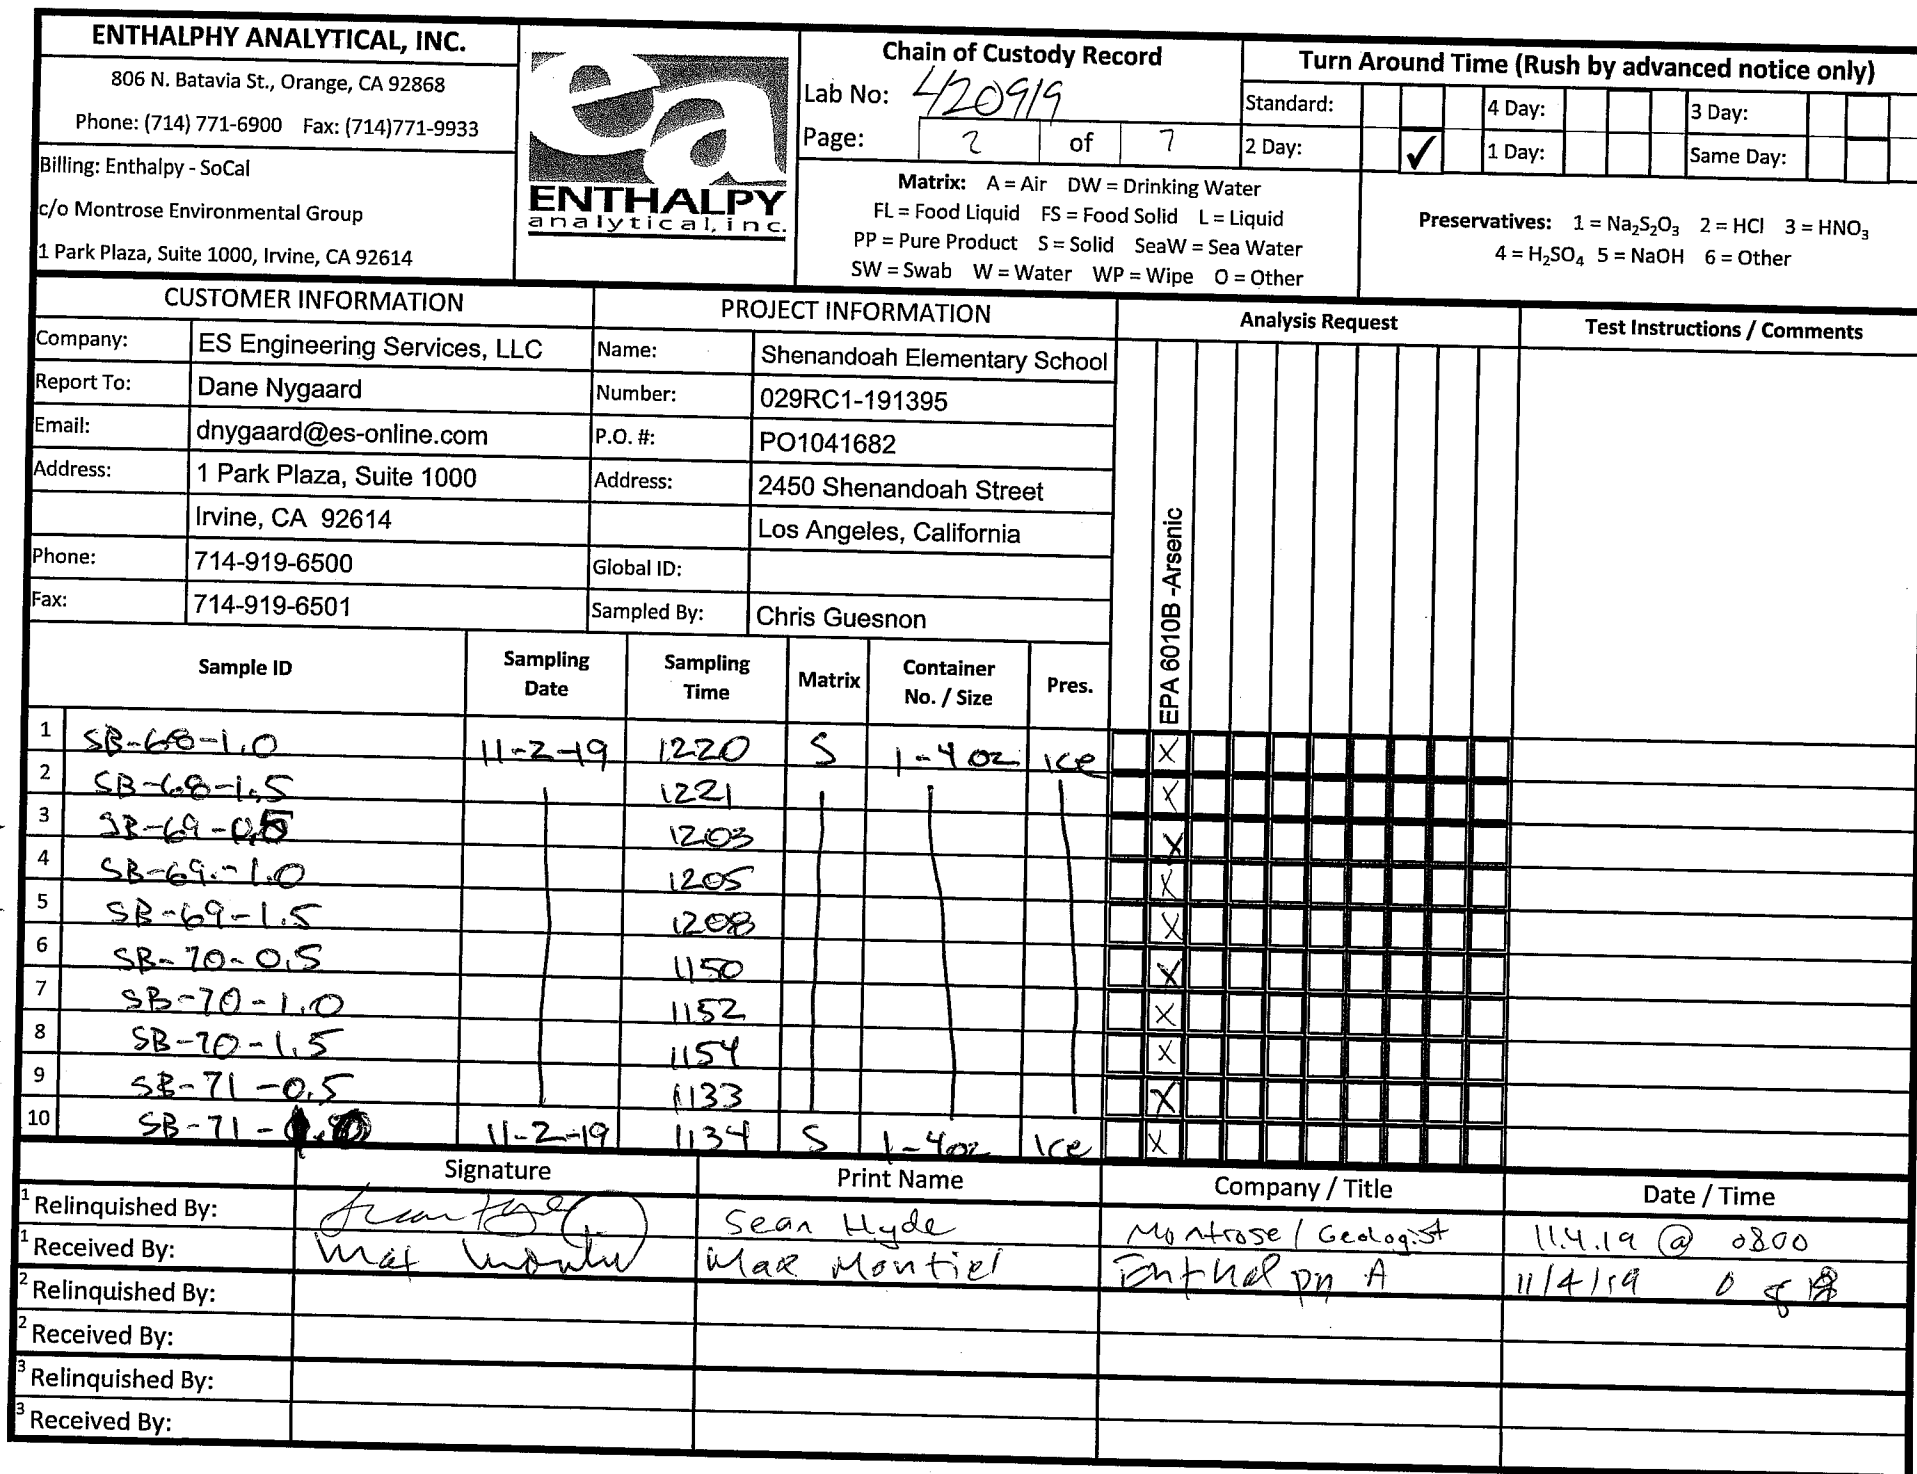 ENTHALPHY ANALYTICAL, INC.
806 N. Batavia St., Orange, CA 92868
Phone: (714) 771-6900 Fax: (714)771-9933
Billing: Enthalpy - SoCal
c/o Montrose Environmental Group
1 Park Plaza, Suite 1000, Irvine, CA 92614
ea
ENTHALPY
analytical, inc.
Chain of Custody Record
Lab No: 420919
Page: 2 of 7
Matrix: A = Air DW = Drinking Water
FL = Food Liquid FS = Food Solid L = Liquid
PP = Pure Product S = Solid SeaW = Sea Water
SW = Swab W = Water WP = Wipe O = Other
Turn Around Time (Rush by advanced notice only)
Standard: 4 Day: 3 Day:
2 Day: ✓ 1 Day: Same Day:
Preservatives: 1 = Na₂S₂O₃ 2 = HCl 3 = HNO₃
4 = H₂SO₄ 5 = NaOH 6 = Other
CUSTOMER INFORMATION
Company: ES Engineering Services, LLC
Report To: Dane Nygaard
Email: dnygaard@es-online.com
Address: 1 Park Plaza, Suite 1000
Irvine, CA 92614
Phone: 714-919-6500
Fax: 714-919-6501
PROJECT INFORMATION
Name: Shenandoah Elementary School
Number: 029RC1-191395
P.O. #: PO1041682
Address: 2450 Shenandoah Street
Los Angeles, California
Global ID:
Sampled By: Chris Guesnon
Analysis Request
EPA 6010B -Arsenic
Test Instructions / Comments
Sample ID Sampling Date Sampling Time Matrix Container No. / Size Pres.
1 SB-68-1.0 11-2-19 1220 S 1-4oz ice X
2 SB-68-1.5 1221 X
3 SB-69-0.5 1203 X
4 SB-69-1.0 1205 X
5 SB-69-1.5 1208 X
6 SB-70-0.5 1150 X
7 SB-70-1.0 1152 X
8 SB-70-1.5 1154 X
9 SB-71-0.5 1133 X
10 SB-71- 11-2-19 1134 S 1-4oz Ice X
Signature Print Name Company / Title Date / Time
1 Relinquished By: Sean Hyde Montrose / Geologist 11.4.19 @ 0800
1 Received By: Max Montiel Max Montiel A 11/4/19
2 Relinquished By:
2 Received By:
3 Relinquished By:
3 Received By: